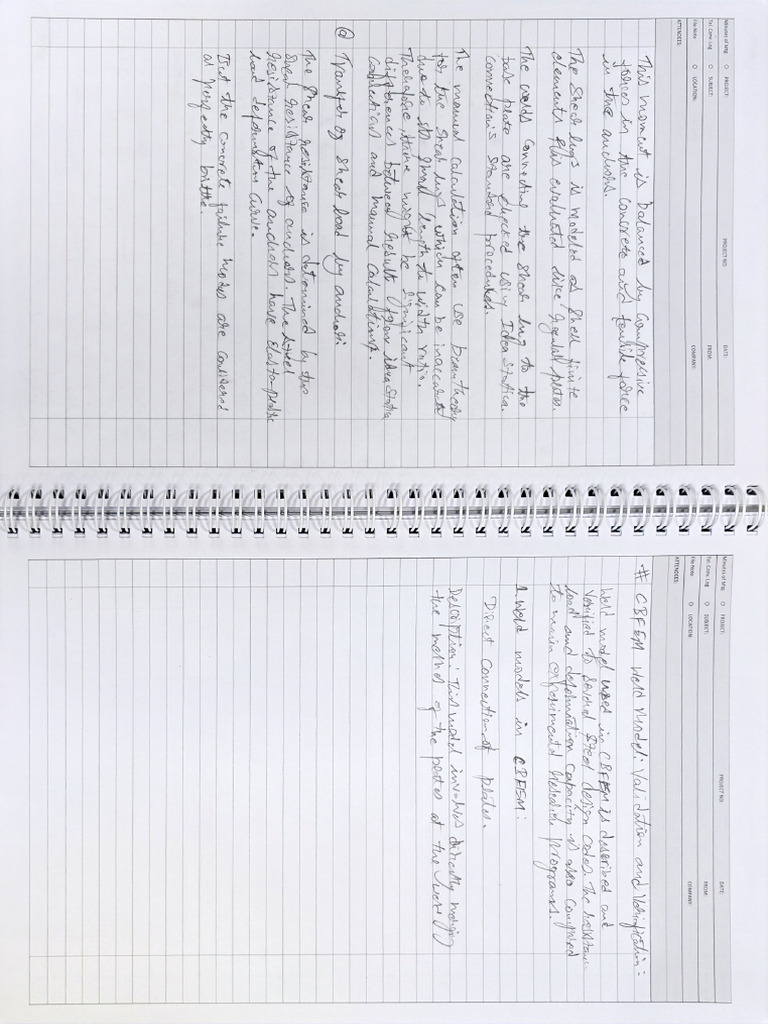 Minutes of Mtg
PROJECT:
PROJECT NO:
DATE:
Tel. Conv. Log
SUBJECT:
FROM:
File Note
LOCATION:
COMPANY:
ATTENDEES:
This moment is balanced by compressive
forces in the concrete and tensile force
in the anchors.
The Shear lugs is modeled as shell finite
elements evaluated like regular plates.
The welds connecting the shear lug to the
base plate are checked using Idea Statica.
connection's standard procedures.
The manual calculation often use beam theory
for the shear lugs, which can be inaccurate
due to its small length to width ratio.
Therefore, there might be significant
differences between results from idea statica
connection and manual calculations.
@ Transfer of shear load by anchors:
The shear resistance is determined by the
shear resistance of anchors. The steel
resistance of the anchors have elasto-plastic
load deformation curve.
But the concrete failure modes are considered
as perfectly brittle.
Minutes of Mtg
PROJECT:
PROJECT NO:
DATE:
Tel. Conv. Log
SUBJECT:
FROM:
File Note
LOCATION:
COMPANY:
ATTENDEES:
# CBFEM Weld Model: Validation and Verification:
Weld model used in CBFEM is described and
Verified to several steel design codes. The resistance
load and deformation capacity is also compared
to main experimental research programs.
1. Weld models in CBFEM:
Direct connection of plates.
Description: This model involves directly merging
the meshes of the plates at the